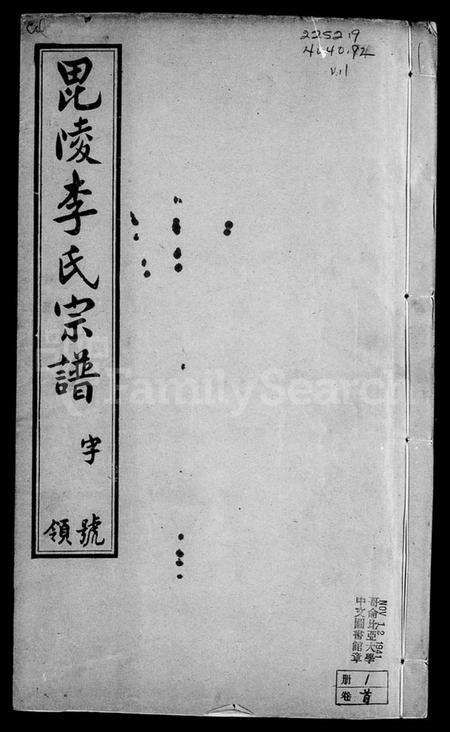 2252.9
4040.92
v.1
毘陵李氏宗譜
字
號
領
FamilySearch
NOV 12 1941
哥倫比亞大學
中文圖書館章
冊 1
卷 首